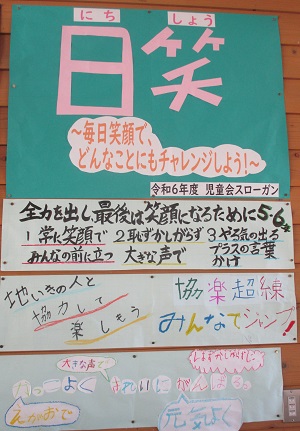 にち しょう
日笑
～毎日笑顔で、
どんなことにもチャレンジしよう!～
令和6年度 児童会スローガン
全力を出し、最後は笑顔になるために5・6年
1 常に笑顔で 2 恥ずかしがらず 3 やる気の出る
みんなの前に立つ 大きな声で プラスの言葉
かけ
地いきの人と
協力して
楽しもう
協楽超線
みんなでジャンプ!
大きな声で
はずかしがらずに
かっこよく きれいにがんばる。
えがおで
元気よく